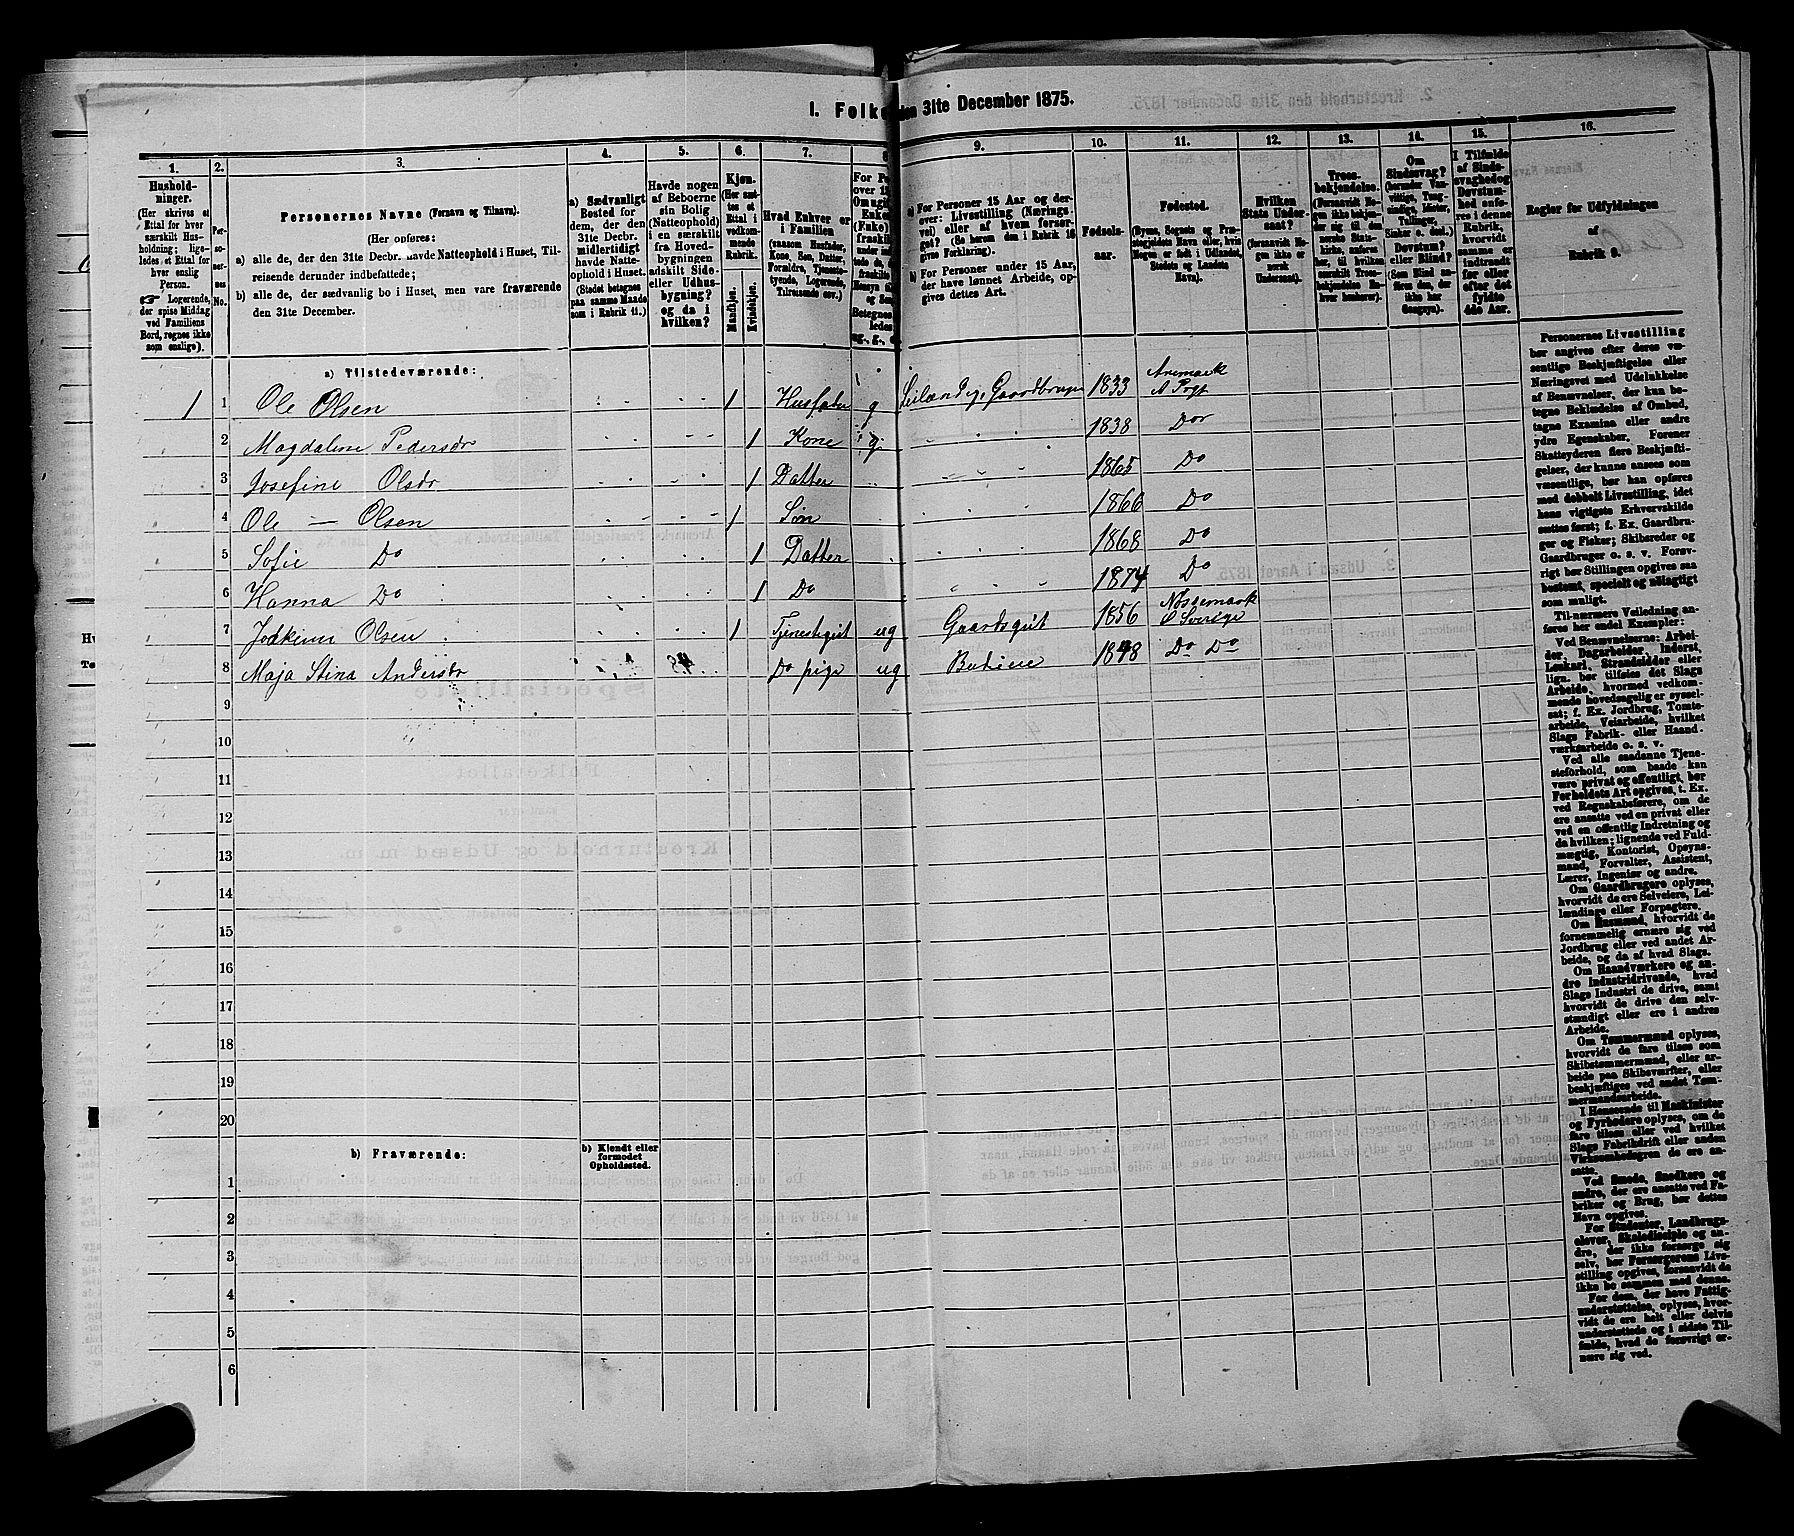 I. Folke
den 31te December 1875.
1.
2.
3.
4.
5.
6.
7.
8
9.
10.
11.
12.
13.
14.
15.
16.
Hushold-
ninger.
(Her skrives et
Ettal for hver
særskilt Hus-
holdning; lige-
ledes et Ettal for
hver enslig
Person.
☞ Logerende,
der spise Middag
ved Familiens
Bord, regnes ikke
som enslige).
Per-
so-
ner-
nes
No.
Personernes Navne (Fornavn og Tilnavn).
(Her opføres:
a) alle de, der den 31te Decbr. havde Natteophold i Huset, Til-
reisende derunder indbefattede;
b) alle de, der sædvanlig bo i Huset, men vare fraværende
den 31te December.
a) Sædvanligt
Bosted for
dem, der den
31te Decbr.
midlertidigt
havde Natte-
ophold i Huset.
(Stedet betegnes
paa samme Maade
som i Rubrik 11.)
Havde nogen
af Beboerne
sin Bolig
(Natteophold)
i en særskilt
fra Hoved-
bygningen
adskilt Side-
eller Udhus-
bygning?
og da i
hvilken?
Kjøn.
(Her sæt-
tes et
Ettal i
vedkom-
mende
Rubrik.
Mandkjøn.
Kvindekjøn.
Hvad Enhver er
i Familien
(saasom Husfader,
Kone, Søn, Datter,
Forældre, Tjeneste-
tyende, Logerende,
Tilreisende osv.)
For Pe
over 15
Om ugi
Enke
(Enke)
fraskilt
Betegnes
ledes
ug., g., e
a) For Personer 15 Aar og der-
over: Livsstilling (Nærings-
vei) eller af hvem forsør-
get? (Se herom den i Rubrik 16
givne Forklaring).
b) For Personer under 15 Aar,
der have lønnet Arbeide, op-
gives dettes Art.
Fødsels-
aar.
Fødested.
(Byens, Sognets og Præ-
stegjeldets Navn eller, hvis
Nogen er født i Udlandet,
Stedets og Landets
Navn).
Hvilken
Stats Under-
saat?
(forsaavidt No-
gen ikke er
norsk
Undersaat).
Troes-
bekjendelse.
(Forsaavidt No-
gen ikke bekjen-
der sig til den
norske Stats-
kirke, anføres
her, til hvilken
særskilt Troes-
bekjendelse En-
hver henhører).
Om
Sindssvag?
(herunder Van-
vittige, Tung-
sindige, Idioter,
Tullinger,
Sinker o. desl.)
Døvstum?
eller Blind?
(Som Blind an-
føres den, der
ikke har
Gangsyn).
I Tilfælde
af Sinds-
svaghed og
Døvstum-
hed anfø-
res i denne
Rubrik,
hvorvidt
samme er
indtraadt
før eller
efter det
fyldte
4de Aar.
Regler for Udfyldningen
af
Rubrik 9.
a) Tilstedeværende:
1 1 Ole Olsen 1 Husfader g Leilændig, Gaardbruger 1833 Aremark
Pgt
2 Magdalene Pedersdr 1 Kone g 1838 Do
3 Josefine Olsdr 1 Datter 1865 Do
4 Ole — Olsen 1 Søn 1866 Do
5 Sofie Do 1 Datter 1868 Do
6 Hanna Do 1 Do 1874 Do
7 Jockim Olsen 1 Tjenestegut ug Gaardsgut 1856 Nøssemark
Sverige
8 Maja Stina Andersdr Do pige ug Budeie 1848 Do Do
9
10
11
12
13
14
15
16
17
18
19
20
b) Fraværende:
b) Kjendt eller
formodet
Opholdssted.
1
2
3
4
5
6
Personernes Livsstilling
bør angives efter deres væ-
sentlige Beskjæftigelse eller
Næringsvei med Udelukkelse
af Benævnelser, der kun be-
tegne Beklædelse af Ombud,
tagne Examina eller andre
ydre Egenskaber. Forener
Skatteyderen flere Beskjæfti-
gelser, der kunne ansees som
væsentlige, bør han opføres
med dobbelt Livsstilling, idet
hans vigtigste Erhvervskilde
sættes først; f. Ex. Gaardbru-
ger og Fisker; Skibsreder og
Gaardbruger o. s. v. Forøv-
rigt bør Stillingen opgives saa
bestemt, specielt og nøiagtigt
som muligt.
Til nærmere Veiledning an-
føres her endel Exempler:
Ved Benævnelserne: Arbei-
der, Dagarbeider, Inderst,
Løskarl, Strandsidder eller
lign. bør tilføies det Slags
Arbeide, hvormed vedkom-
mende hovedsagelig er syssel-
sat; f. Ex. Jordbrug, Tomte-
arbeide, Veiarbeide, hvilket
Slags Fabrik- eller Haand-
værksarbeide o. s. v.
Ved alle saadanne Tjene-
steforhold, som baade kan
være privat og offentligt, bør
Forholdets Art opgives, t. Ex.
ved Regnskabsførere, om de
ere ansatte ved en privat eller
ved en offentlig Indretning og
da hvilken; lignende ved Fuld-
mægtig, Kontorist, Opsyns-
mand, Forvalter, Assistent,
Lærer, Ingeniør og andre.
Om Gaardbrugere oplyses,
hvorvidt de ere Selveiere, Lei-
lændinge eller Forpagtere.
Om Husmænd, hvorvidt de
fornemmelig ernære sig ved
Jordbrug eller ved andet Ar-
beide, og da af hvad Slags.
Om Haandværkere og an-
dre Industridrivende, hvad
Slags Industri de drive, samt
hvorvidt de drive den selv-
stændigt eller ere i andres
Arbeide.
Om Tømmermænd oplyses,
hvorvidt de fare tilsøs som
Skibstømmermænd, eller ar-
beide paa Skibsværfter, eller
beskjæftiges ved andet Tøm-
mermandsarbeide.
I Henseende til Maskinister
og Fyrbødere oplyses, om de
fare tilsøs eller ved hvilket
Slags Fabrikdrift eller anden
Virksomhed de ere an-
satte.
Ved Smede, Snedkere og
andre, der ere ansatte ved Fa-
briker og Brug, bør dettes
Navn opgives.
For Studenter, Landbrugs-
elever, Skoledisciple og an-
dre, der ikke forsørge sig
selv, bør Forsørgerens Livs-
stilling opgives, forsaavidt de
ikke bo sammen med denne.
For dem, der have Fattig-
understøttelse, oplyses, hvor-
vidt de ere helt eller delvis
understøttede og i sidste Til-
fælde, hvad de forøvrigt er-
nære sig ved.